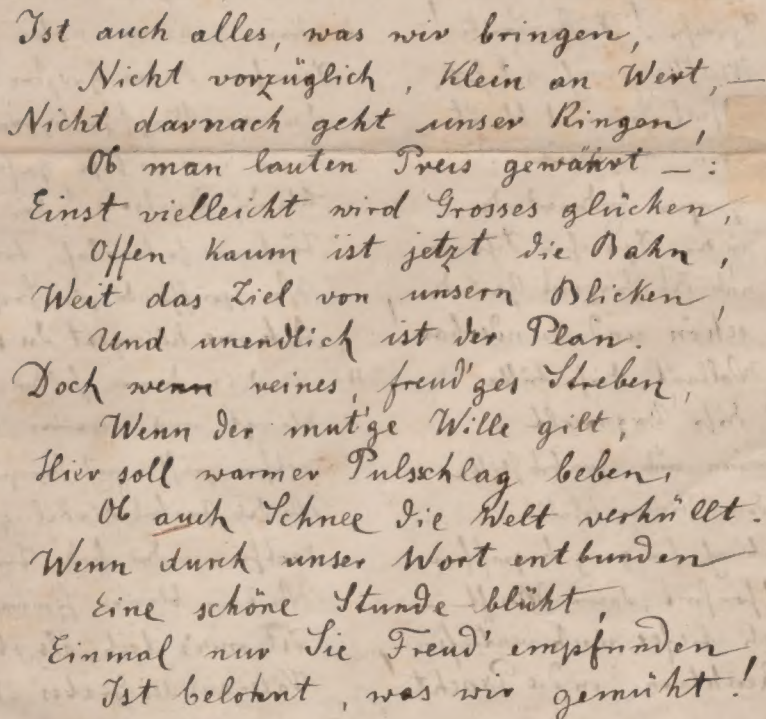 Ist auch alles, was wir bringen,
Nicht vorzüglich, Klein an Wert, —
Nicht darnach geht unser Ringen,
Ob man lauten Preis gewährt — :
Einst vielleicht wird Grosses glücken,
Offen kaum ist jetzt die Bahn,
Weit das Ziel von unsern Blicken,
Und unendlich ist der Plan.
Doch wenn reines, freud'ges Streben,
Wenn der mut'ge Wille gilt,
Hier soll warmer Pulsschlag beben,
Ob auch Schnee die Welt verhüllt.
Wenn durch unser Wort entbunden
Eine schöne Stunde blüht,
Einmal nur Sie Freud' empfunden,
Ist belohnt, was wir gemüht!